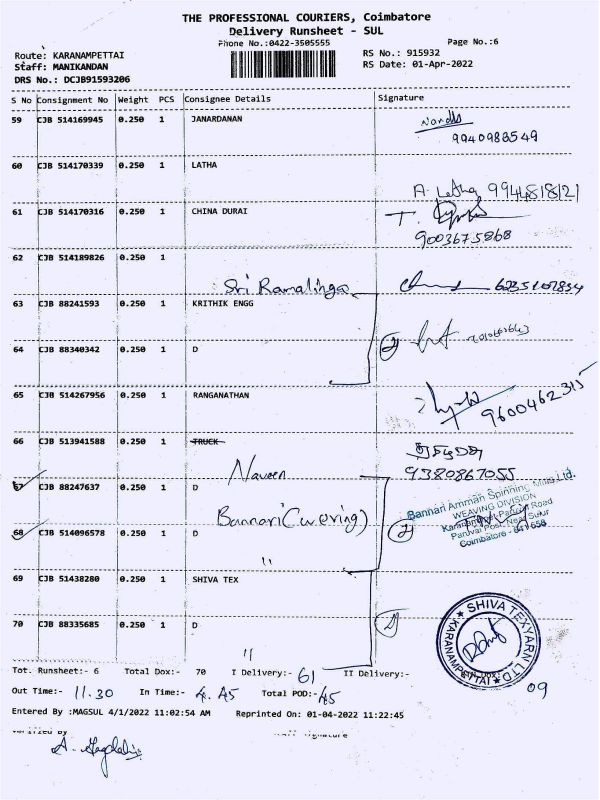 THE PROFESSIONAL COURIERS, Coimbatore
Delivery Runsheet - SUL
Phone No.:0422-3505555
Page No.:6
Route: KARANAMPETTAI
RS No.: 915932
Staff: MANIKANDAN
RS Date: 01-Apr-2022
DRS No.: DCJB91593206
S No Consignment No Weight PCS Consignee Details Signature
59 CJB 514169945 0.250 1 JANARDANAN
9940983549
60 CJB 514170339 0.250 1 LATHA
A. Latha 9944518121
61 CJB 514170316 0.250 1 CHINA DURAI
T.
9003675868
62 CJB 514189826 0.250 1
Sri Ramalinga
63 CJB 88241593 0.250 1 KRITHIK ENGG
2
64 CJB 88340342 0.250 1 D
65 CJB 514267956 0.250 1 RANGANATHAN
9600462315
66 CJB 513941588 0.250 1 TRUCK
Naveen
9380867055
67 CJB 88247637 0.250 1 D
Bannari
2
Bannari Amman Spinning Mills Ltd.
WEAVING DIVISION
Karanampet-Paruvai Road
Paruvai Post, Near Sulur
Coimbatore - 641 658
68 CJB 514096578 0.250 1 D
"
69 CJB 51438280 0.250 1 SHIVA TEX
70 CJB 88335685 0.250 1 D
2
"
SHIVA TEXYARN LTD
KARANAMPETTAI
09
Tot. Runsheet:- 6 Total Dox:- 70 I Delivery:- 61 II Delivery:-
Out Time:- 11.30 In Time:- 4.45 Total POD:- 45
Entered By :MAGSUL 4/1/2022 11:02:54 AM Reprinted On: 01-04-2022 11:22:45
Verified By
Staff Signature